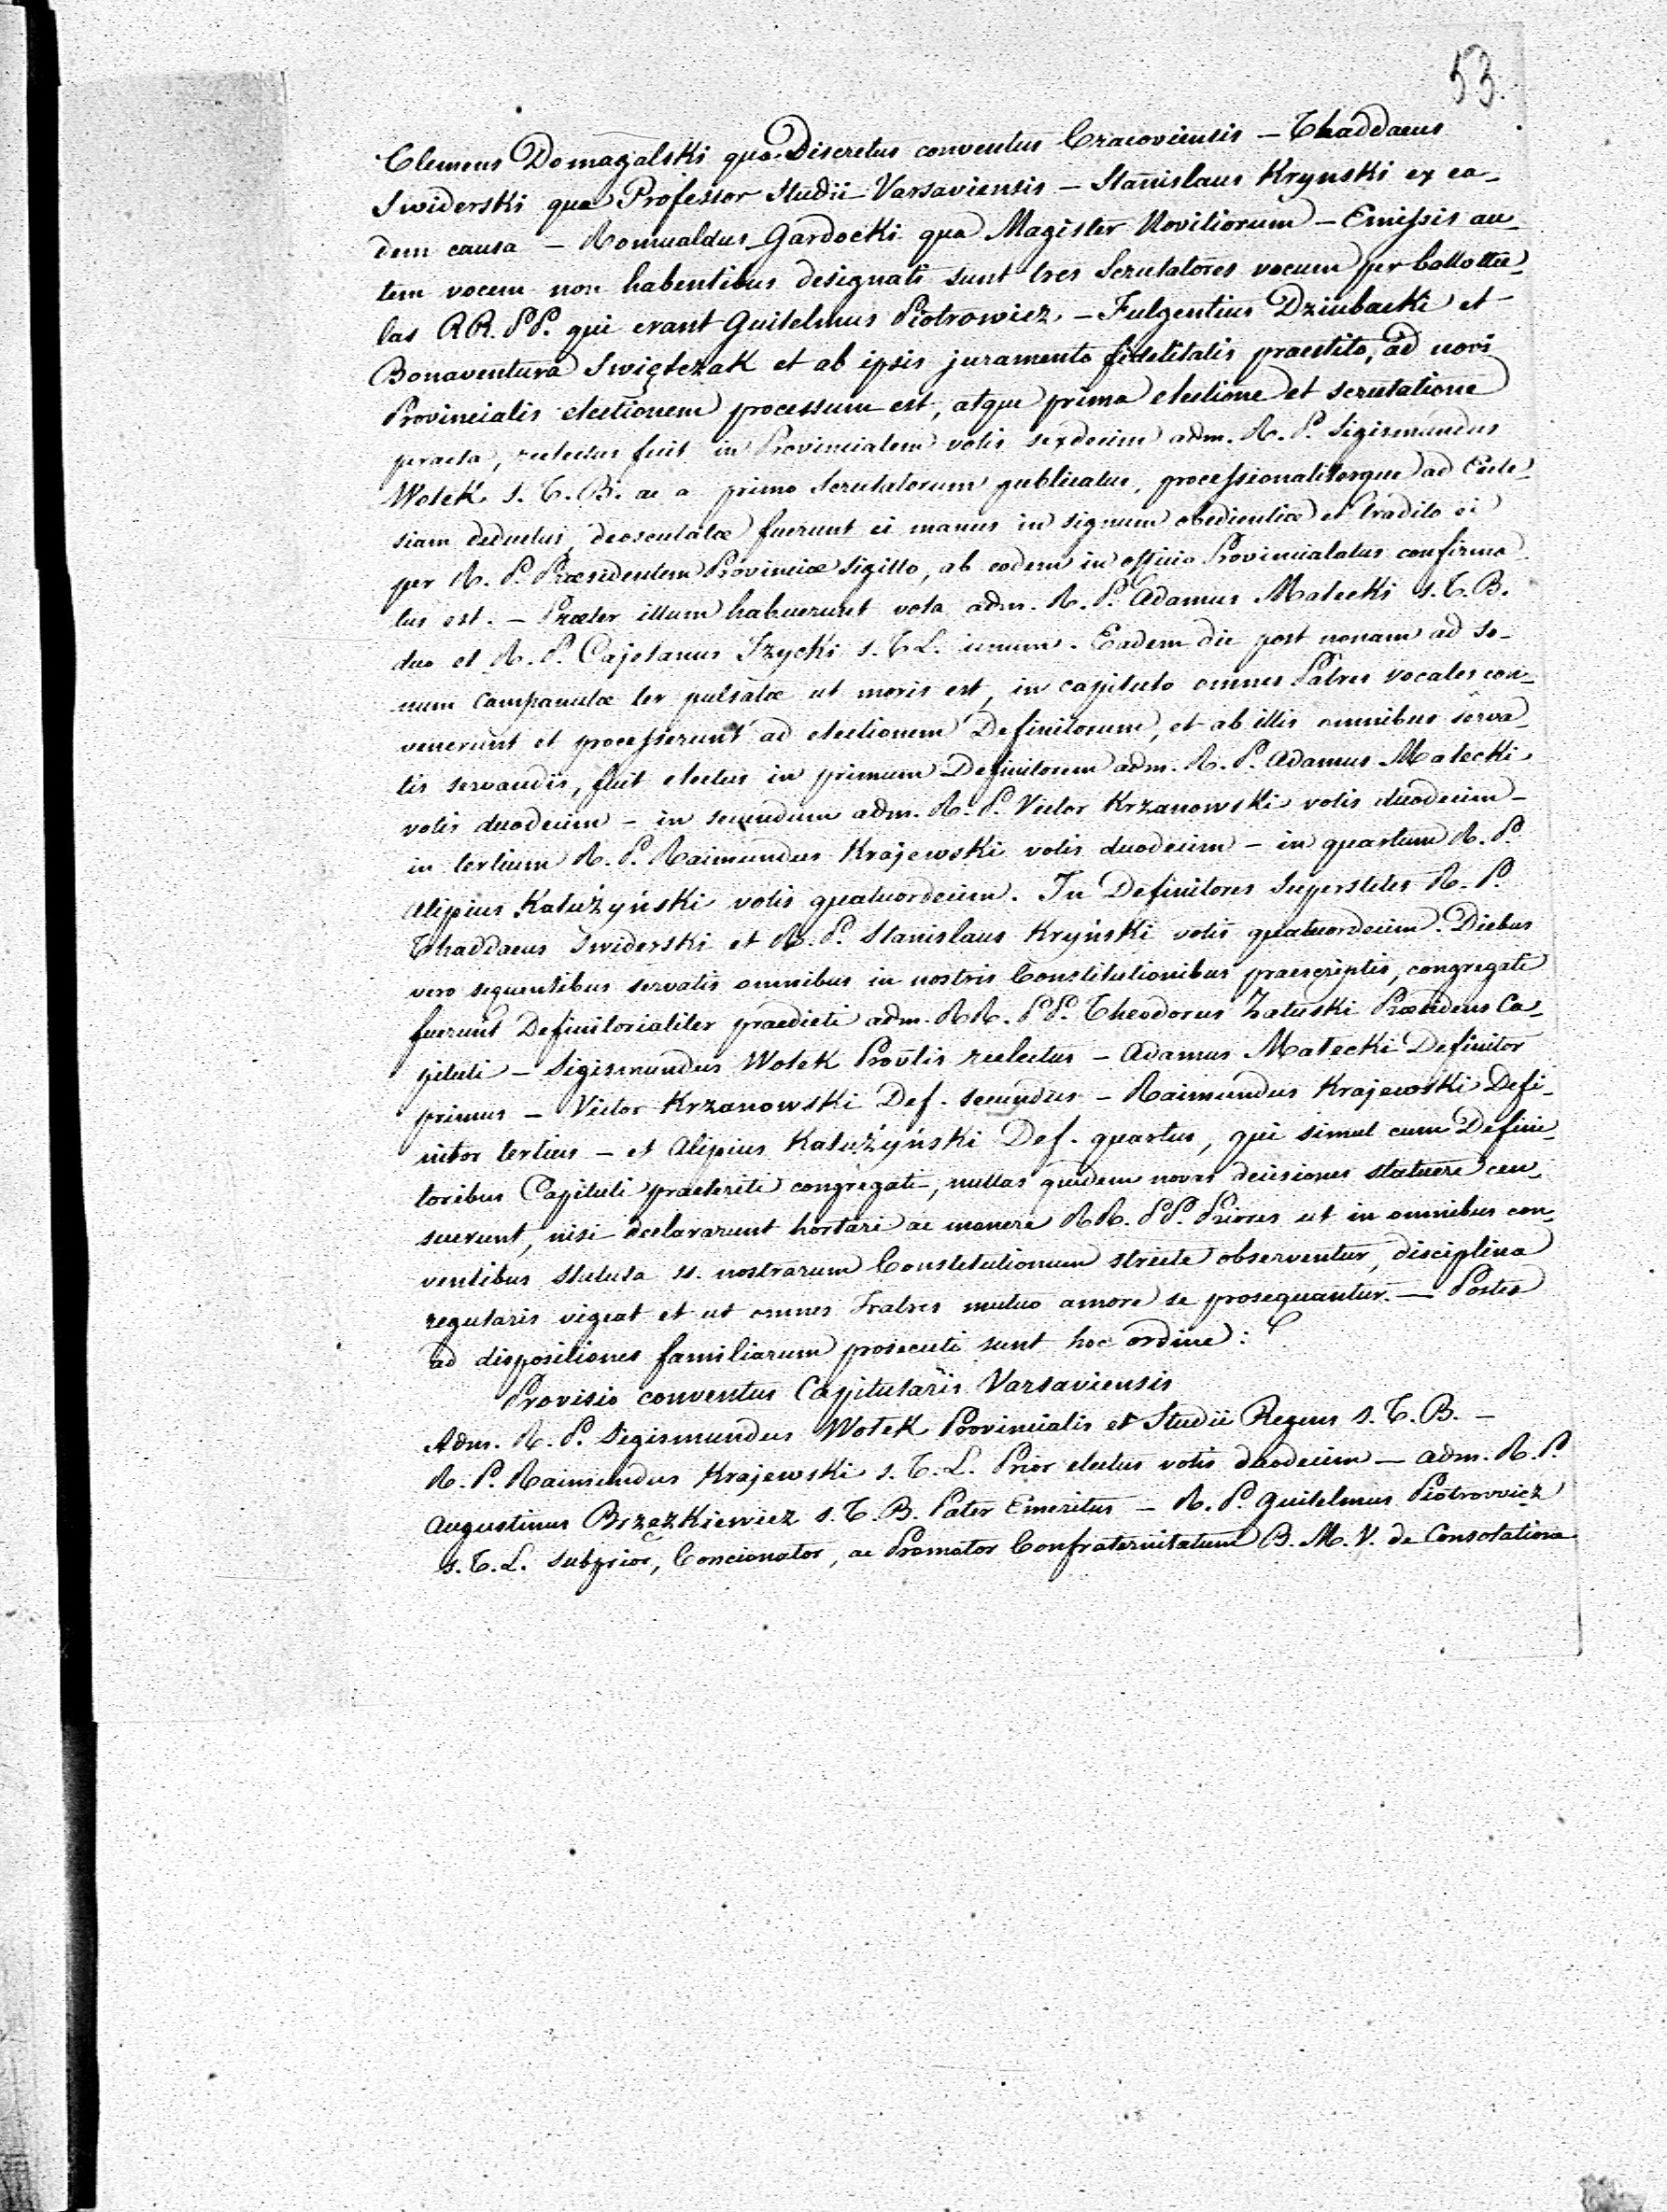 53.
Clemens Domagalski qua Discretus conventus Cracoviensis — Thaddaeus
Swiderski qua Professor Studii Varsaviensis — Stanislaus Krynski ex ea-
dem causa — Romualdus Gardocki qua Magister Novitiorum — Emissis au-
tem vocem non habentibus designati sunt tres Scrutatores vocum per ballottu-
las RR. PP. qui erant Guilelmus Piotrowicz — Fulgentius Dziubacki et
Bonaventura Swiętczak et ab ipsis juramento fidelitatis praestito, ad novi
Provincialis electionem processum est, atque prima electione et scrutatione
peracta, reelectus fuit in Provincialem votis sexdecim adm. R. P. Sigismundus
Wołek S. T. B. ac a primo Scrutatorum publicatus, processionaliterque ad Eccle-
siam deductus, deosculatæ fuerunt ei manus in signum obedientiæ et tradito ei
per R. P. Præsidentem Provinciæ Sigillo, ab eodem in officio Provincialatus confirma
tus est. — Præter illum habuerunt vota adm. R. P. Adamus Małecki S. T. B.
duo et R. P. Cajetanus Izycki S. T. L. unum. Eadem die post nonam ad so-
num Campanulæ ter pulsatæ ut moris est, in capitulo omnes Patres vocales con-
venerunt et processerunt ad electionem Definitorum, et ab illis omnibus serva-
tis servandis, fuit electus in primum Definitorem adm. R. P. Adamus Małecki
votis duodecim — in secundum adm. R. P. Victor Krzanowski votis duodecim —
in tertium R. P. Raimundus Krajewski votis duodecim — in quartum R. P.
Alipius Kałużyński votis quatuordecim. In Definitores Superstites R. P.
Thaddaeus Swiderski et R. P. Stanislaus Kryński votis quatuordecim. Diebus
vero sequentibus servatis omnibus in nostris Constitutionibus praescriptis, congregati
fuerunt Definitorialiter praedicti adm. RR. PP. Theodorus Załuski Præsidens Ca-
pituli — Sigismundus Wołek Provlis reelectus — Adamus Małecki Definitor
primus — Victor Krzanowski Def. secundus — Raimundus Krajewski Defi-
nitor tertius — et Alipius Kałużyński Def. quartus, qui simul cum Defini-
toribus Capituli praeteriti congregati, nullas quidem novas decisiones statuere cen-
suerunt, nisi declararunt hortari ac monere RR. PP. Priores ut in omnibus con-
ventibus statuta SS. nostrarum Constitutionum stricte observentur, disciplina
regularis vigeat et ut omnes Fratres mutuo amore se prosequantur. — Postea
ad dispositiones familiarum prosecuti sunt hoc ordine:
Provisio conventus Capitularis Varsaviensis
Adm. R. P. Sigismundus Wołek Provincialis et Studii Regens S. T. B. —
R. P. Raimundus Krajewski S. T. L. Prior electus votis duodecim — adm. R. P.
Augustinus Brzęzkiewicz S. T. B. Pater Emeritus — R. P. Guilelmus Piotrowicz
S. T. L. Subprior, Concionator, ac Promotor Confraternitatum B. M. V. de Consolatione